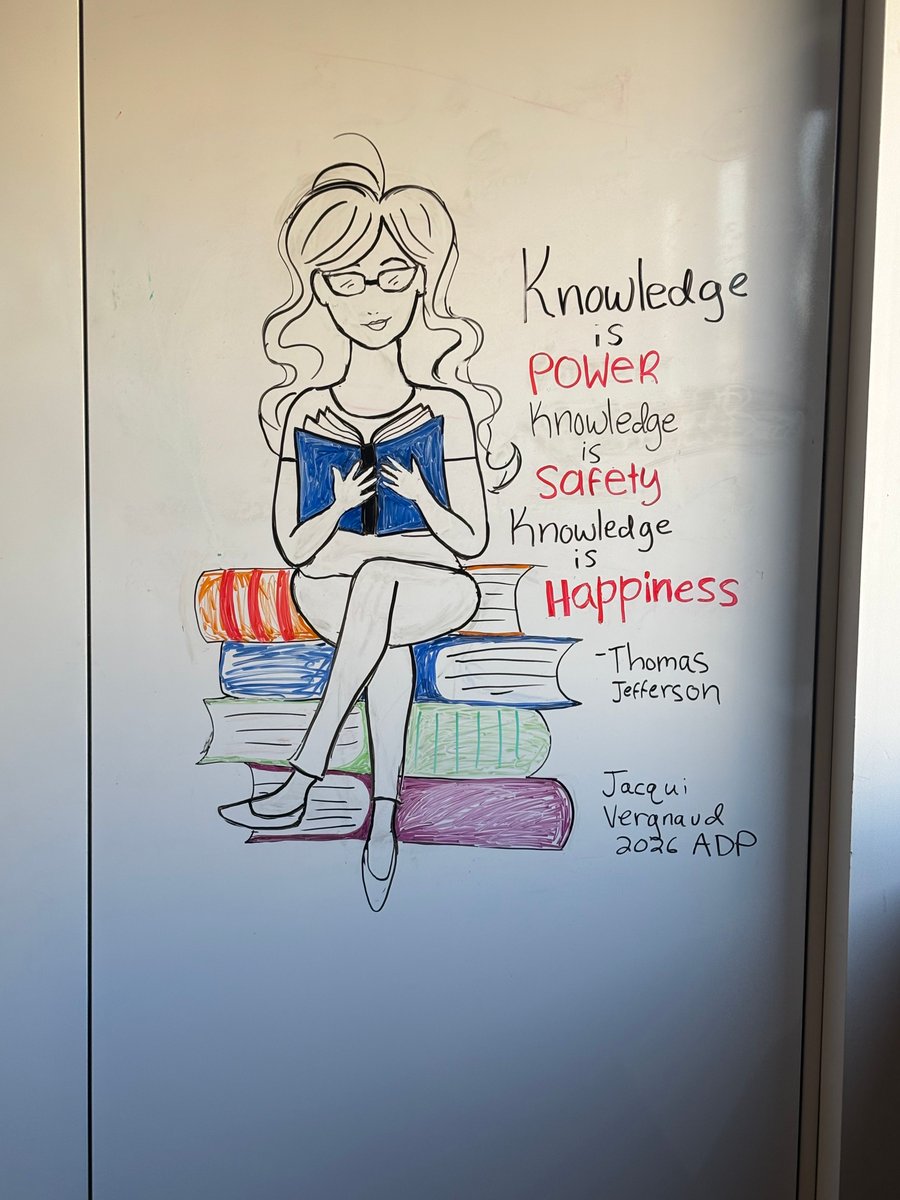 Knowledge
is
POWER
Knowledge
is
Safety
Knowledge
is
Happiness
-Thomas
Jefferson
Jacqui
Vergnaud
2026 ADP